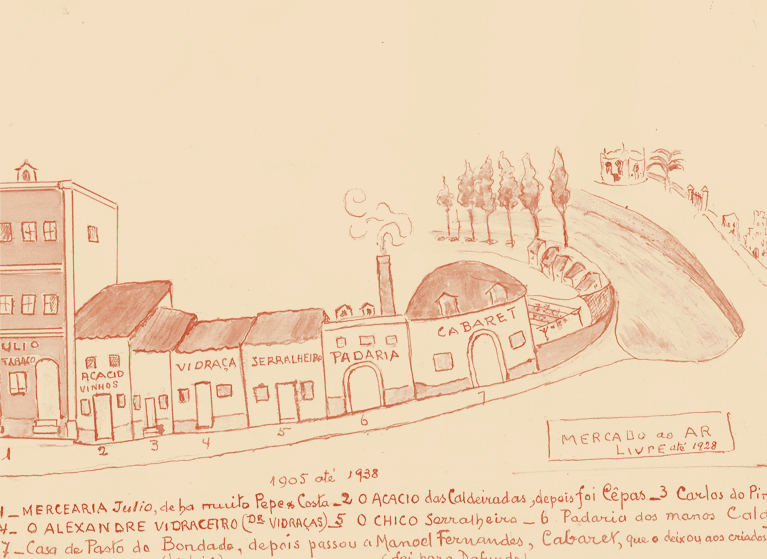 ULIO
TABACO
ACACIO
VINHOS
VIDRAÇA
SERRALHEIRO
PADARIA
CABARET
1
2
3
4
5
6
7
MERCADO ao AR
LIVRE até 1928
1905 até 1938
1_ MERCEARIA Julio, de ha muito Pepe & Costa _2 O ACACIO das Caldeiradas, depois foi Cêpas _3 Carlos do Pir
4_ O ALEXANDRE VIDRACEIRO (DE VIDRAÇAS)_5 O CHICO Serralheiro _ 6 Padaria dos manos Cald
7_ Casa de Pasto do Bondade, depois passou a Manoel Fernandes, Cabaret, que o deixou aos criados
(foi para Dafundo)